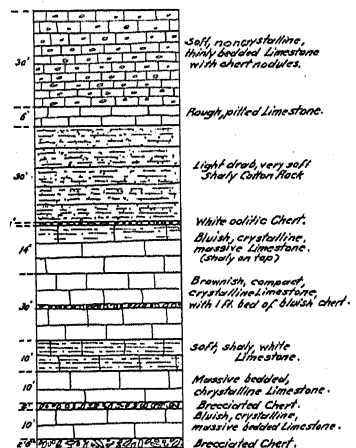 30'
Soft, noncrystalline,
thinly bedded Limestone
with chert nodules.
6'
Rough, pitted Limestone.
30'
Light drab, very soft
Shaly Cotton Rock
1'
White oolitic Chert.
14'
Bluish, crystalline,
massive Limestone.
(shaly on top)
30'
Brownish, compact,
crystalline Limestone,
with 1 ft. bed of bluish chert.
10'
Soft, shaly, white
Limestone.
10'
Massive bedded,
chrystalline Limestone.
Brecciated Chert.
10'
Bluish, crystalline,
massive bedded Limestone.
Brecciated Chert.